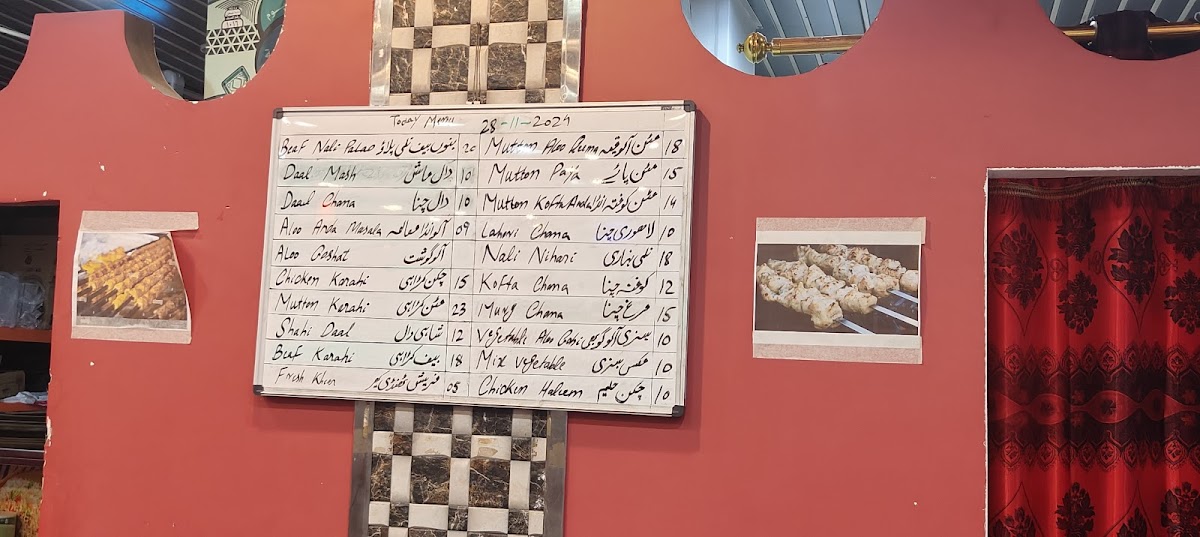 Today Menu 28-11-2024
Beaf Nali Palao بنوں بیف نلی پلاؤ 20
Daal Mash دال ماش 10
Daal Chana دال چنا 10
Aloo Anda Masala 09
Aloo Goshat آلو گوشت
Chicken Karahi چکن کڑاہی 15
Mutton Karahi مٹن کڑاہی 23
Shahi Daal شاہی دال 12
Beaf Karahi بیف کڑاہی 18
Fresh Kheer 05
Mutton Aloo مٹن آلو 18
Mutton Paja مٹن پائے 15
Mutton Kofta Anda مٹن کوفتہ انڈا 14
Lahori Chana لاھوری چنا 10
Nali Nihari نلی نہاری 18
Kofta Chana کوفتہ چنا 12
Murg Chana مرغ چنا 15
Vegetable Aloo Gobi سبزی آلو گوبھی 10
Mix Vegetable مکس سبزی 10
Chicken Haleem چکن حلیم 10